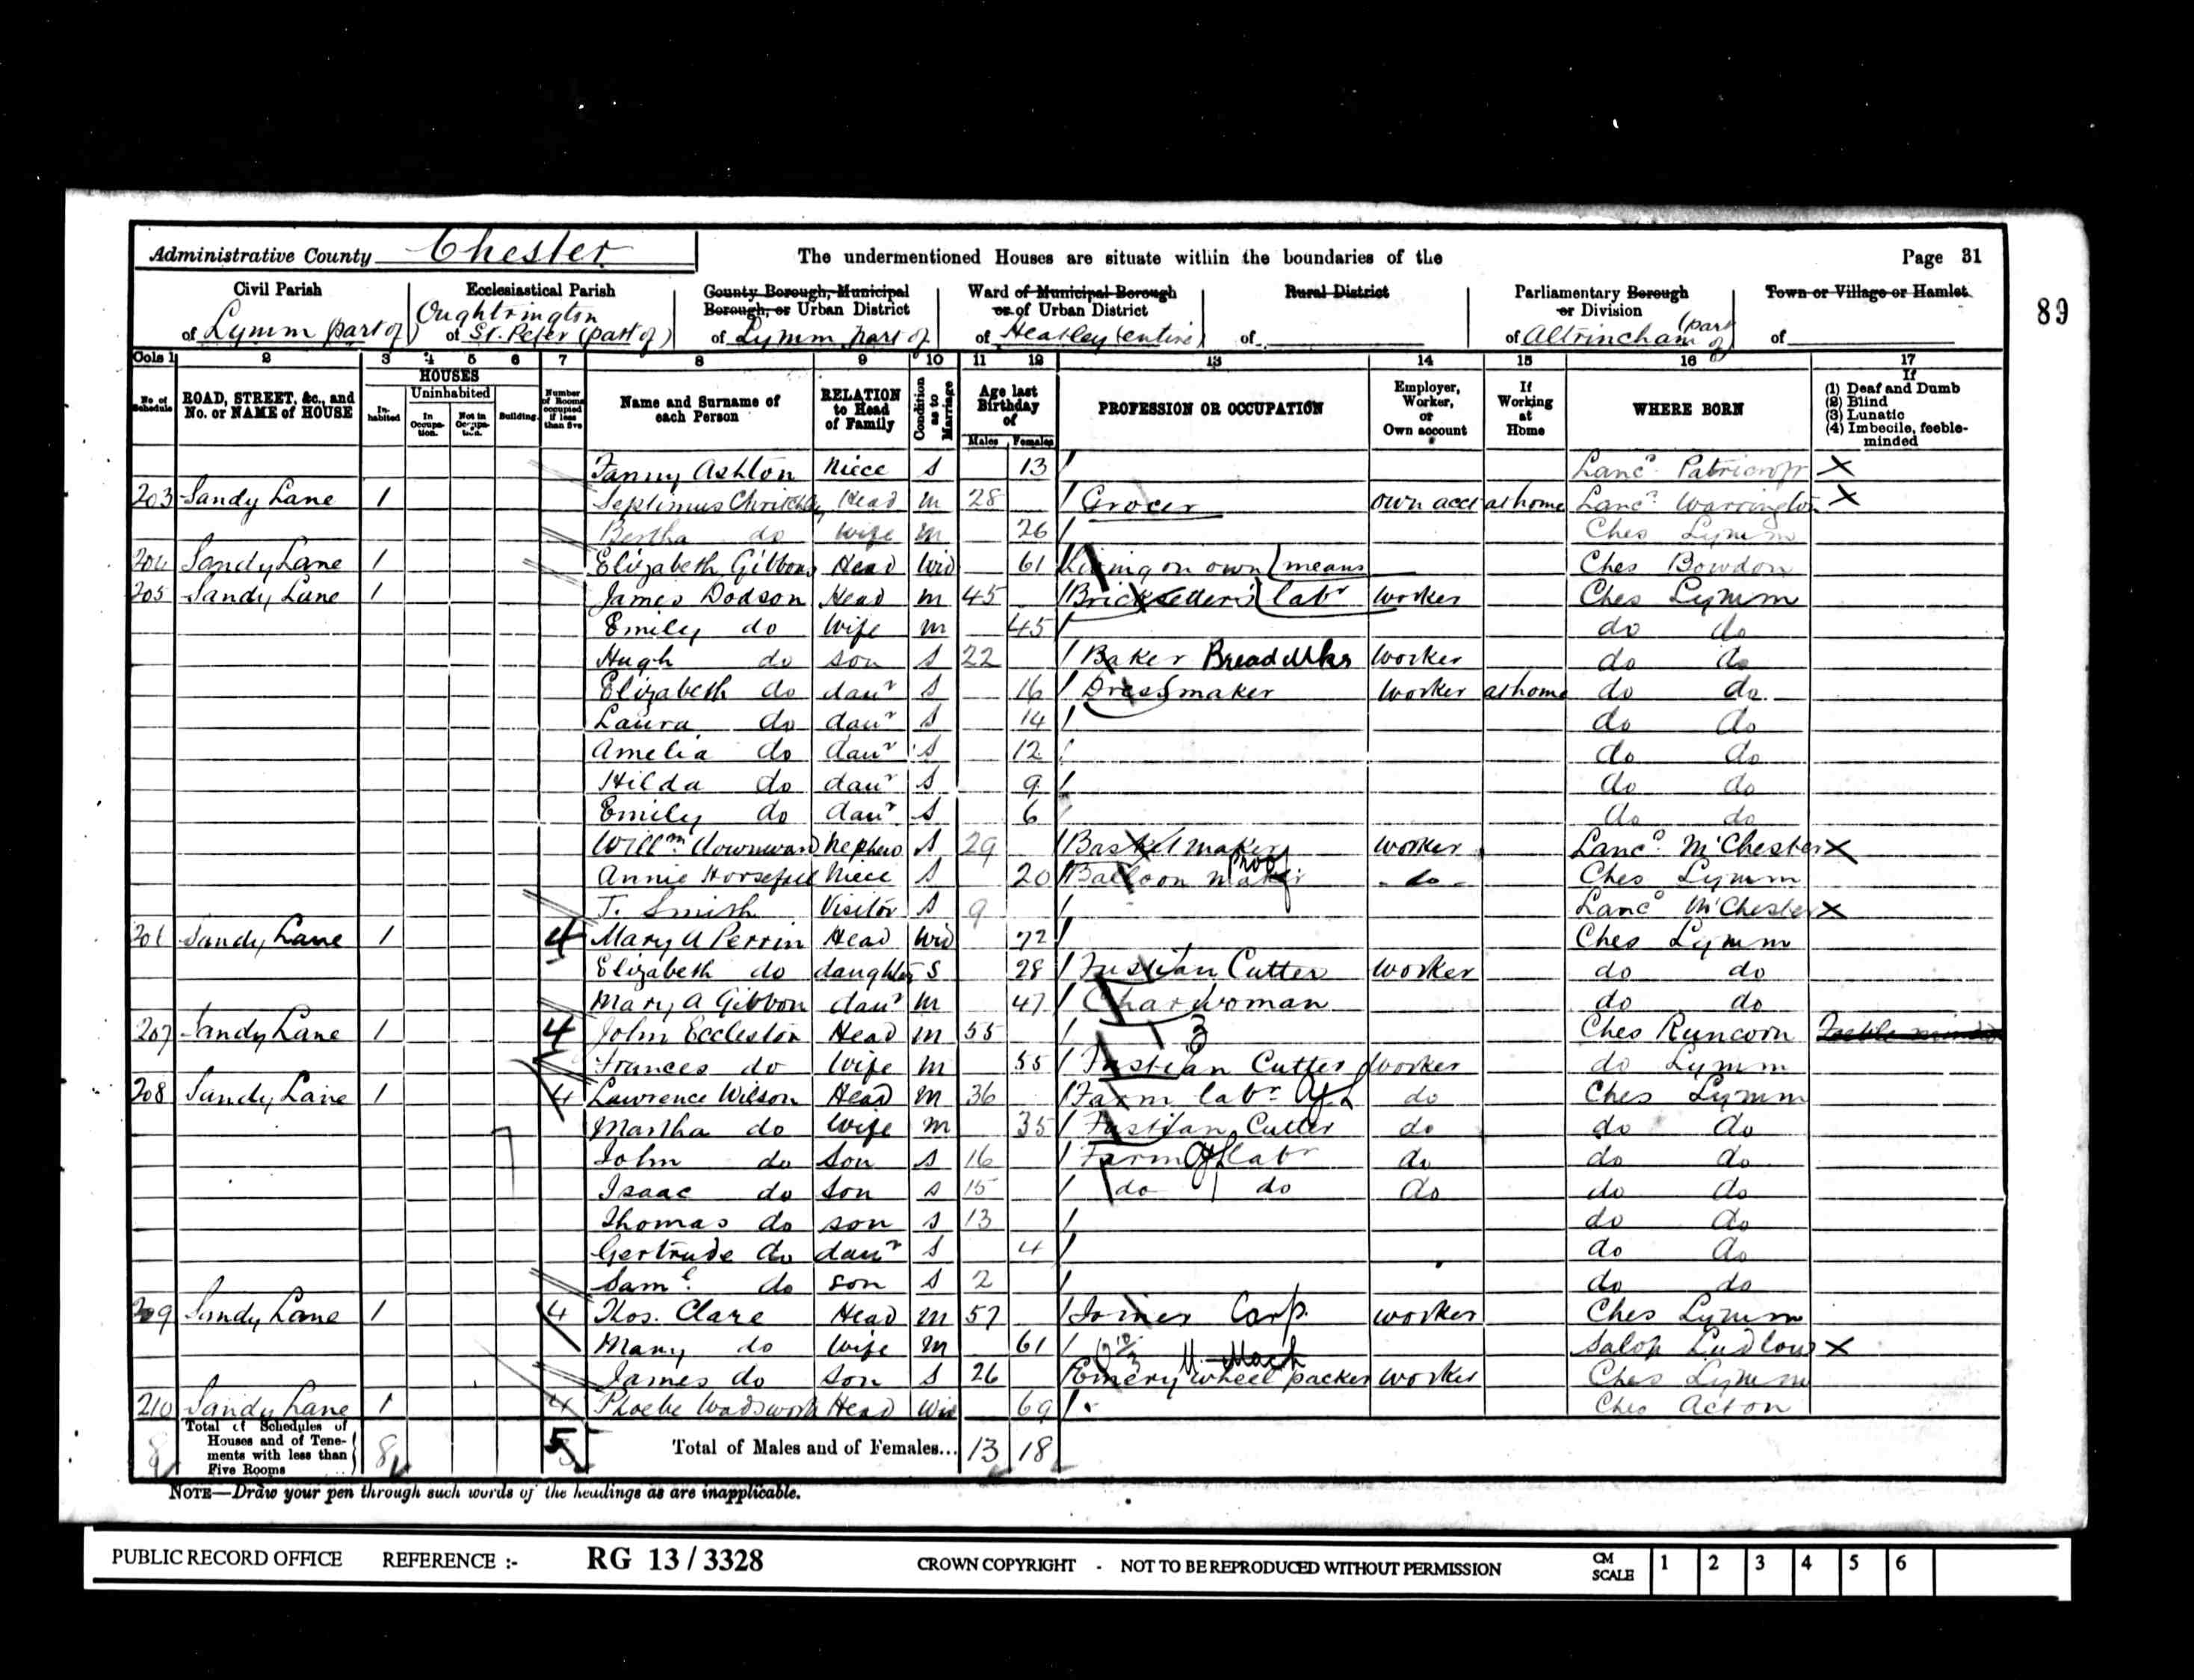 Administrative County Chester The undermentioned Houses are situate within the boundaries of the Page 31
Civil Parish Ecclesiastical Parish County Borough, Municipal Borough, or Urban District Ward of Municipal Borough or of Urban District Rural District Parliamentary Borough or Division Town or Village or Hamlet
of Lymm (part of) Oughtrington of St. Peter (part of) of Lymm part of of Heatley (entire) of of Altrincham (part of) of
89
Cols 1 2 3 4 5 6 7 8 9 10 11 12 13 14 15 16 17
No. of Schedule ROAD, STREET, &c., and No. or NAME of HOUSE HOUSES Inhabited Uninhabited In Occupation. Not in Occupation. Building. Number of Rooms occupied if less than five Name and Surname of each Person RELATION to Head of Family Condition as to Marriage Age last Birthday of Males Females PROFESSION OR OCCUPATION Employer, Worker, or Own account If Working at Home WHERE BORN If (1) Deaf and Dumb (2) Blind (3) Lunatic (4) Imbecile, feeble-minded
Fanny Ashton Niece S 13 Lanc. Patricroft X
203 Sandy Lane 1 Septimus Chritchley Head M 28 Grocer own acct at home Lanc. Warrington X
Bertha do wife M 26 Ches Lymm
204 Sandy Lane 1 Elizabeth Gibbons Head Wid 61 Living on own means Ches Bowdon
205 Sandy Lane 1 James Dodson Head M 45 Bricksetter's labr worker Ches Lymm
Emily do Wife M 45 do do
Hugh do son S 22 Baker Bread Mkr worker do do
Elizabeth do daur S 16 Dressmaker worker at home do do
Laura do daur S 14 do do
Amelia do daur S 12 do do
Hilda do daur S 9 do do
Emily do daur S 6 do do
Willm Downward Nephew S 29 Basket maker worker Lanc. M'Chester X
Annie Horsefall Niece S 20 Balloon maker do Ches Lymm
T. Smith Visitor S 9 Lanc. M'Chester X
206 Sandy Lane 1 4 Mary A Perrin Head Wid 72 Ches Lymm
Elizabeth do daughter S 28 Fustian Cutter worker do do
Mary A Gibbon daur M 47 Charwoman do do
207 Sandy Lane 1 4 John Eccleston Head M 55 3 Ches Runcorn Feeble minded
Frances do Wife M 55 Fustian Cutter worker do Lymm
208 Sandy Lane 1 4 Lawrence Wilson Head M 36 Farm labr do Ches Lymm
Martha do Wife M 35 Fustian Cutter do do do
John do Son S 16 Farm labr do do do
Isaac do Son S 15 do do do do do
Thomas do son S 13 do do
Gertrude do daur S 4 do do
Saml. do son S 2 do do
209 Sandy Lane 1 4 Thos. Clare Head M 57 Joiner Carp. worker Ches Lymm
Mary do Wife M 61 Salop Ludlow X
James do Son S 26 Emery wheel packer worker Ches Lymm
210 Sandy Lane 1 4 Phoebe Wadsworth Head Wid 69 Ches Acton
8 Total of Schedules of Houses and of Tenements with less than Five Rooms 8 5 Total of Males and of Females... 13 18
NOTE—Draw your pen through such words of the headings as are inapplicable.
PUBLIC RECORD OFFICE REFERENCE :- RG 13 / 3328 CROWN COPYRIGHT - NOT TO BE REPRODUCED WITHOUT PERMISSION CM SCALE 1 2 3 4 5 6